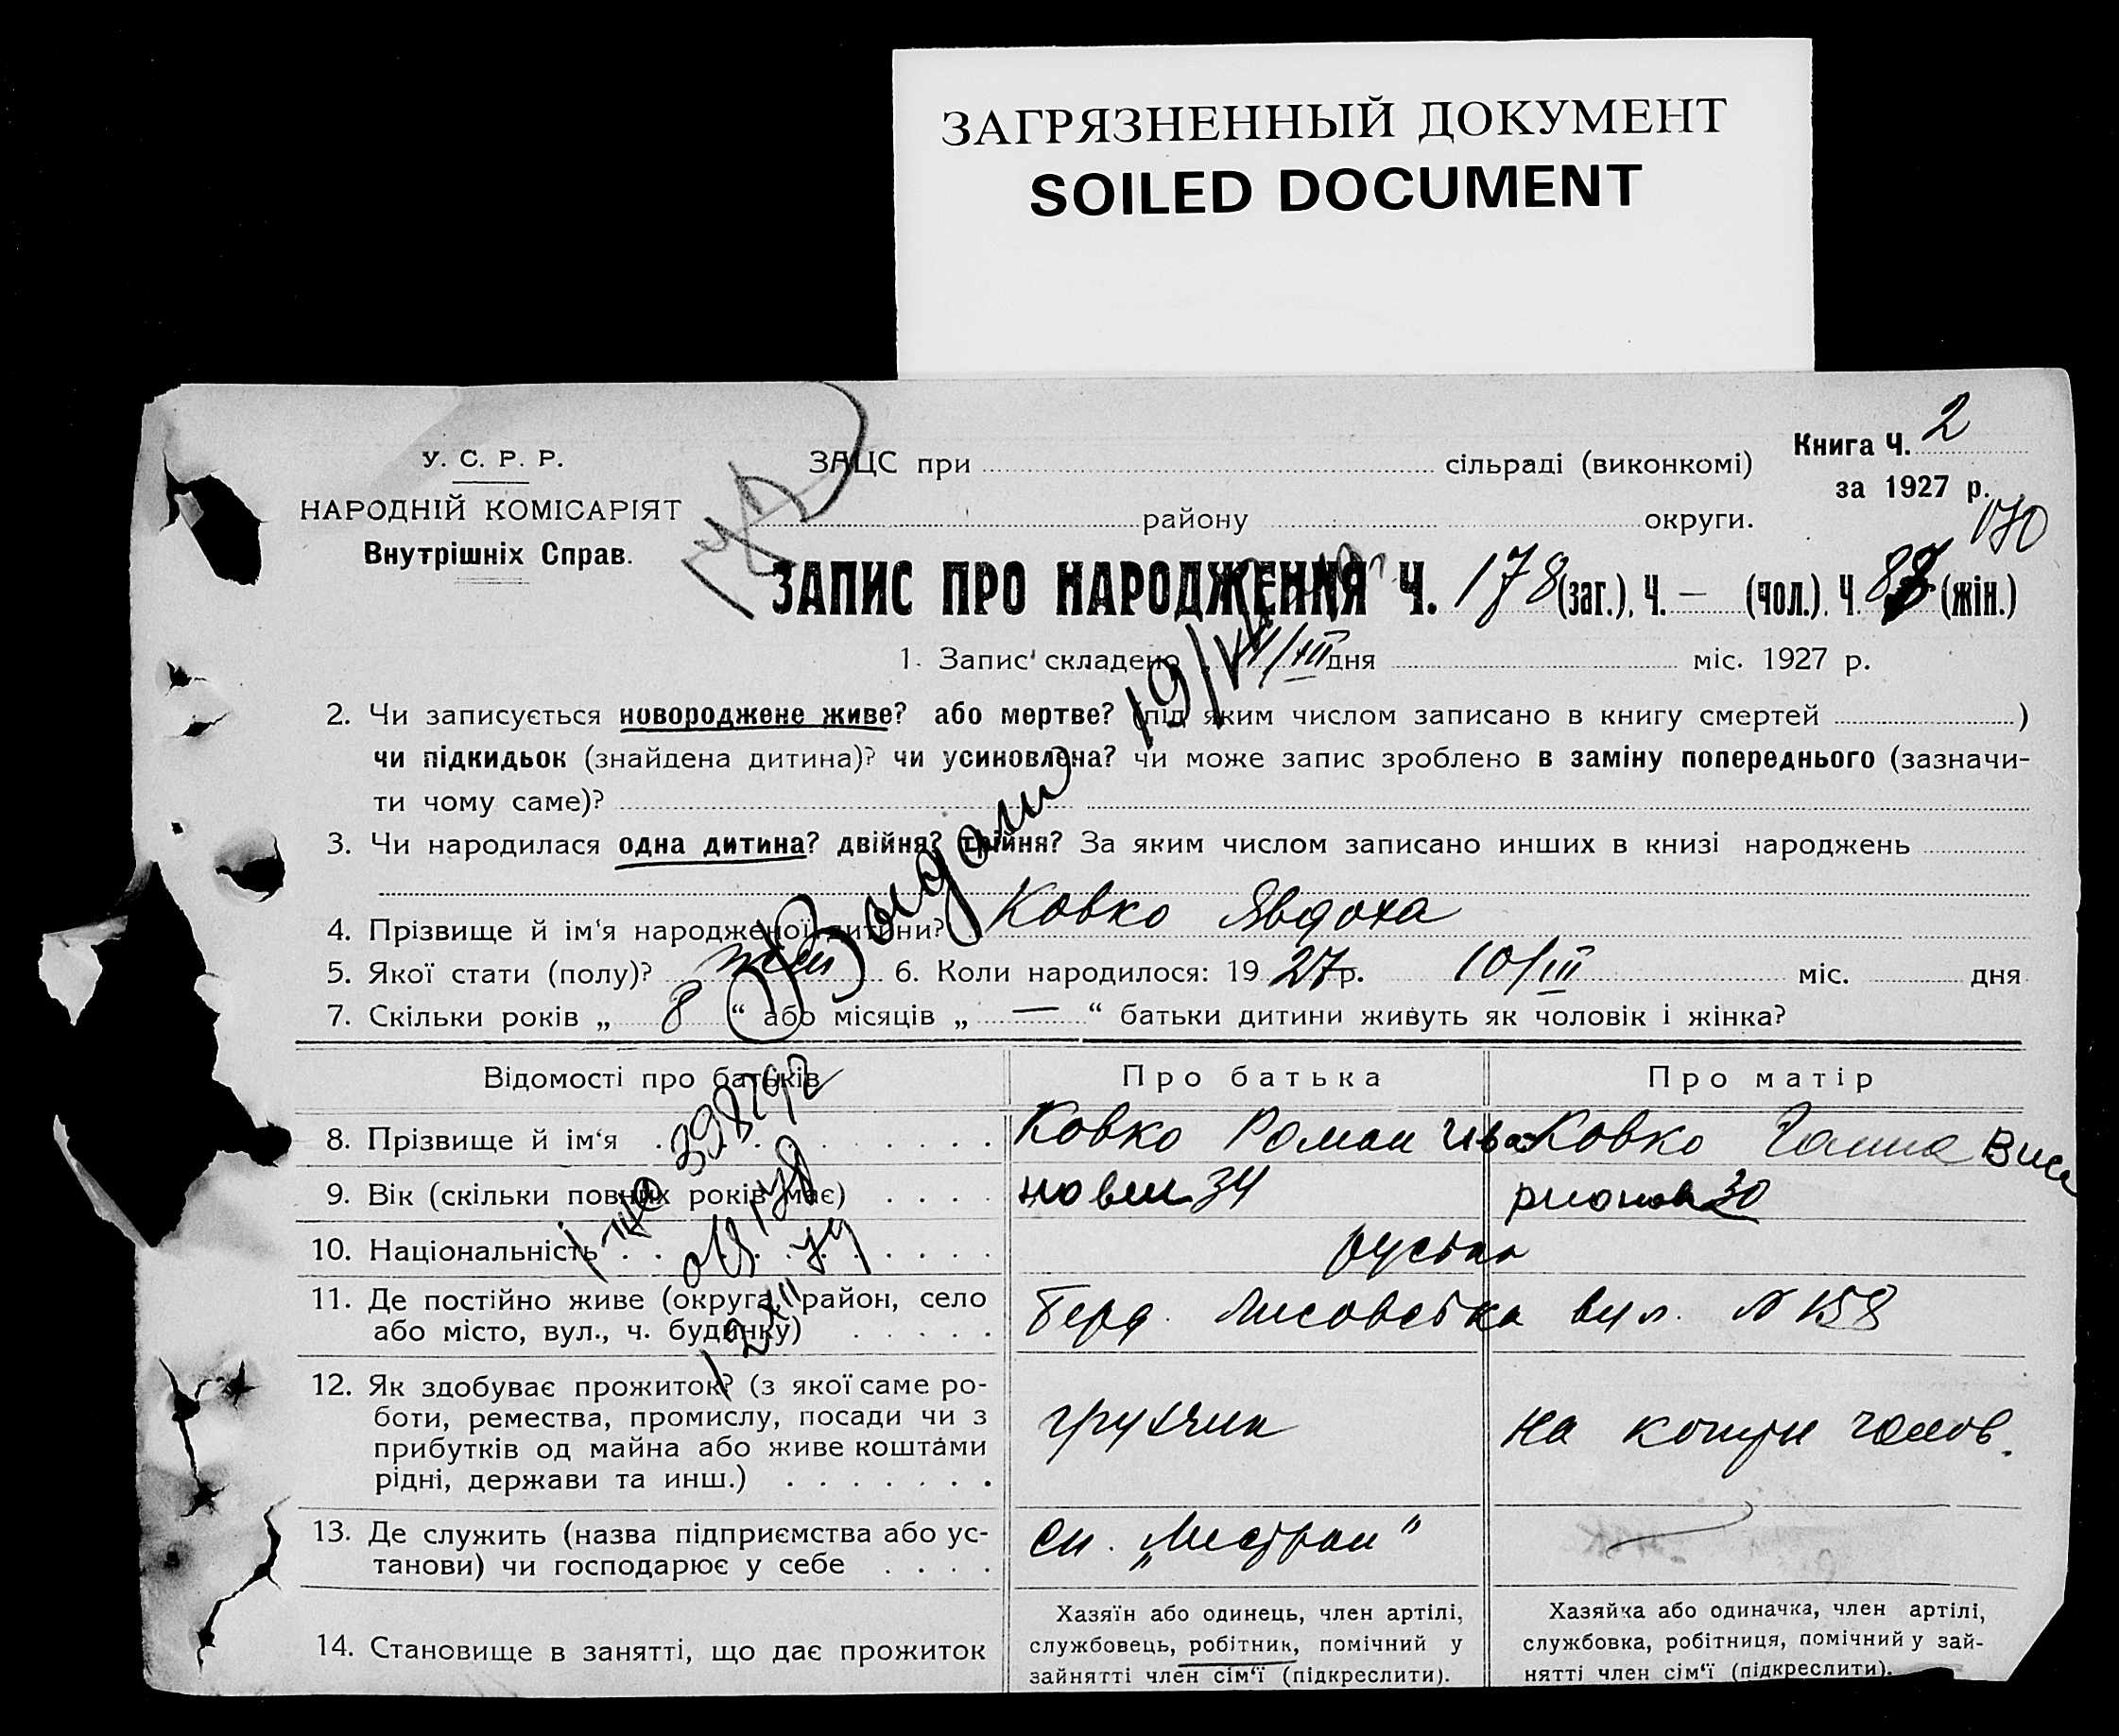 ЗАГРЯЗНЕННЫЙ ДОКУМЕНТ
SOILED DOCUMENT
У. С. Р. Р.
НАРОДНІЙ КОМІСАРІЯТ
Внутрішніх Справ.
ЗАЦС при сільраді (виконкомі)
району округи.
Книга Ч. 2
за 1927 р.
170
ЗАПИС ПРО НАРОДЖЕННЯ Ч. 178 (заг.), Ч. — (чол.), Ч. (жін.)
1. Запис складено дня міс. 1927 р.
2. Чи записується новороджене живе? або мертве? (під яким числом записано в книгу смертей )
чи підкидьок (знайдена дитина)? чи усиновлена? чи може запис зроблено в заміну попереднього (зазначи-
ти чому саме)?
3. Чи народилася одна дитина? двійня? трійня? За яким числом записано инших в книзі народжень
4. Прізвище й ім'я народженої дитини? Ковко Явдоха
5. Якої стати (полу)? жін 6. Коли народилося: 19 27 р. 10/III міс. дня
7. Скільки років „ 8 “ або місяців „ — “ батьки дитини живуть як чоловік і жінка?
Видан
398792
Відомості про батьків
Про батька
Про матір
8. Прізвище й ім'я
Ковко Роман Іва
Ковко Ганна
9. Вік (скільки повних років має)
нович 34
30
10. Національність
11. Де постійно живе (округа, район, село
або місто, вул., ч. будинку)
Берд. Лисовська вул. N 158
12. Як здобуває прожиток? (з якої саме ро-
боти, ремества, промислу, посади чи з
прибутків од майна або живе коштами
рідні, держави та инш.)
грузчик
на кошти чолов.
13. Де служить (назва підприємства або ус-
танови) чи господарює у себе
14. Становище в занятті, що дає прожиток
Хазяїн або одинець, член артілі,
службовець, робітник, помічний у
зайнятті член сім'ї (підкреслити).
Хазяйка або одиначка, член артілі,
службовка, робітниця, помічний у зай-
нятті член сім'ї (підкреслити).